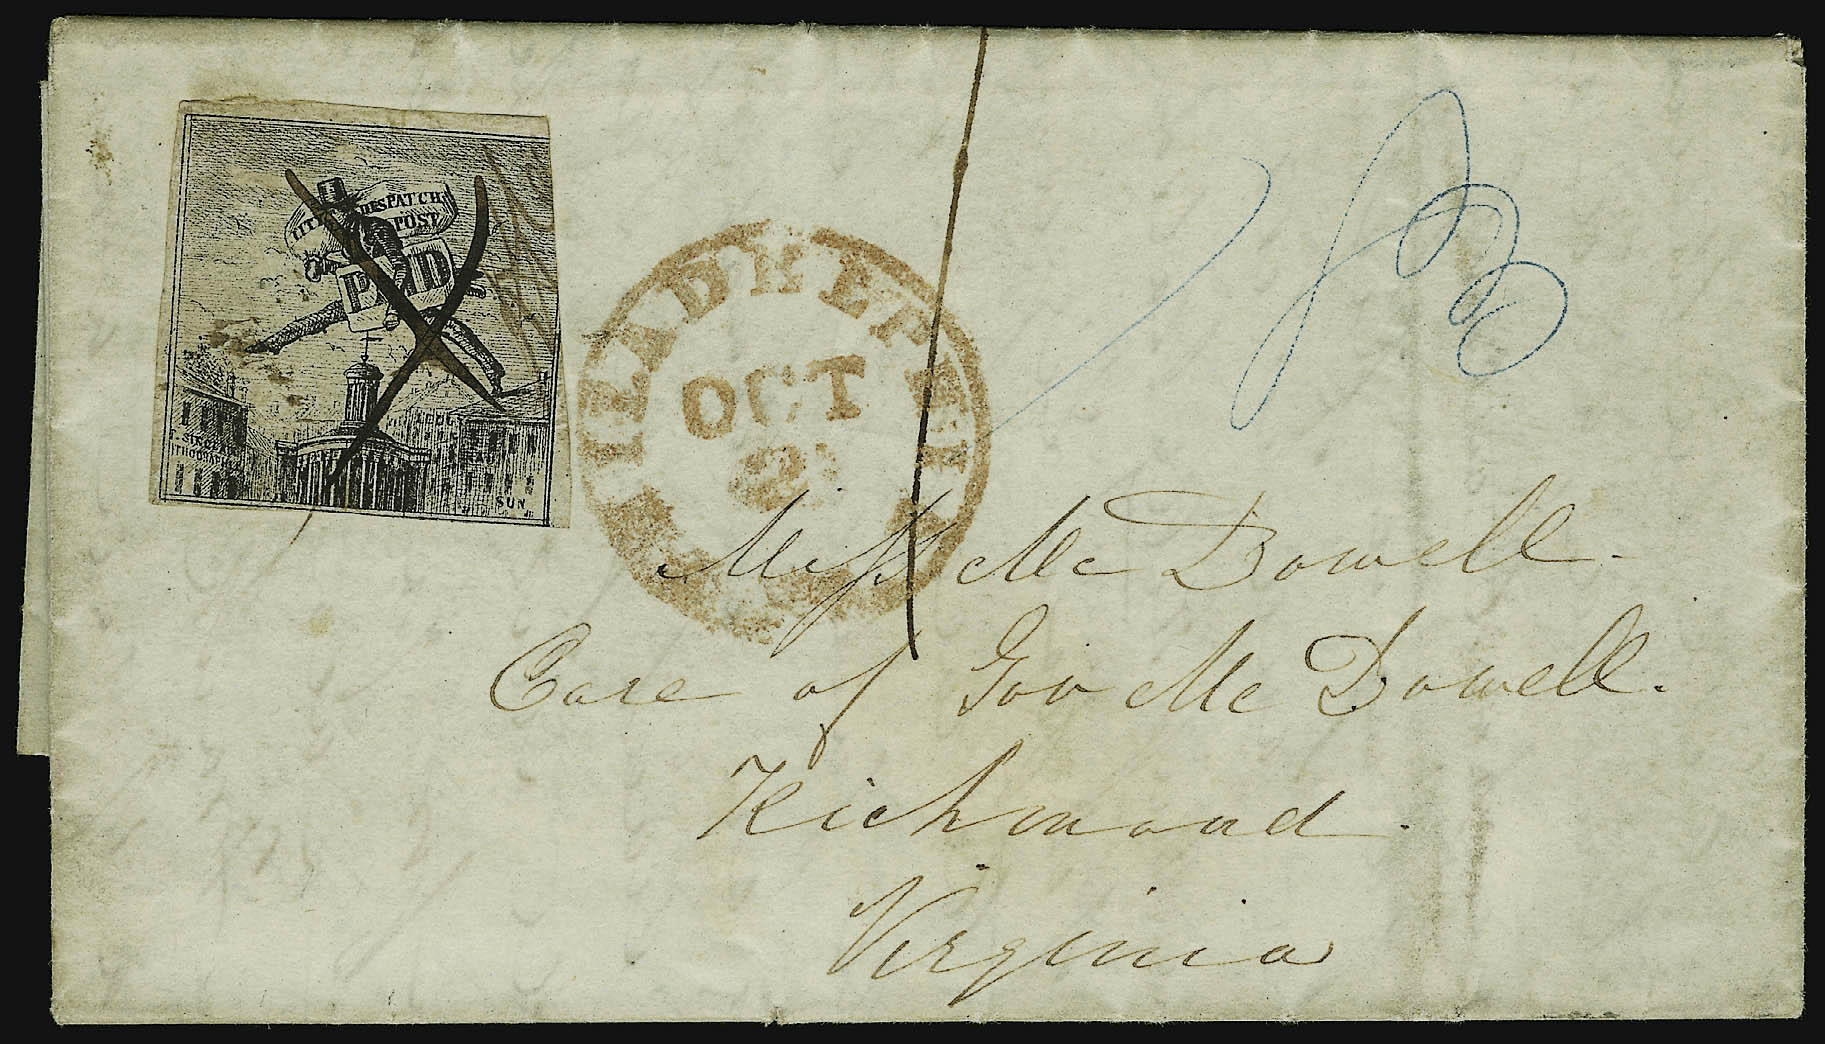 DESPATCH
POST
PAID
SUN
OCT
Miss Mc Dowell.
Care of Gov Mc Dowell.
Richmond.
Virginia